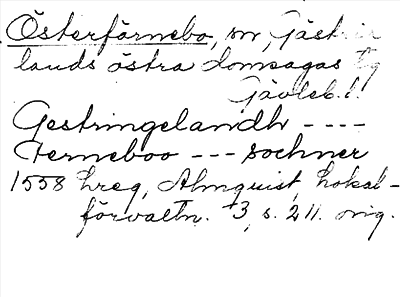 Österfärnebo, sn, Gästrik
lands östra domsagas tg
Gävleb. l.
Gestringelandh ----
Ferneboo --- sochner
1558 hreg, Almquist, Lokal-
förvaltn. +3, s. 211. orig.